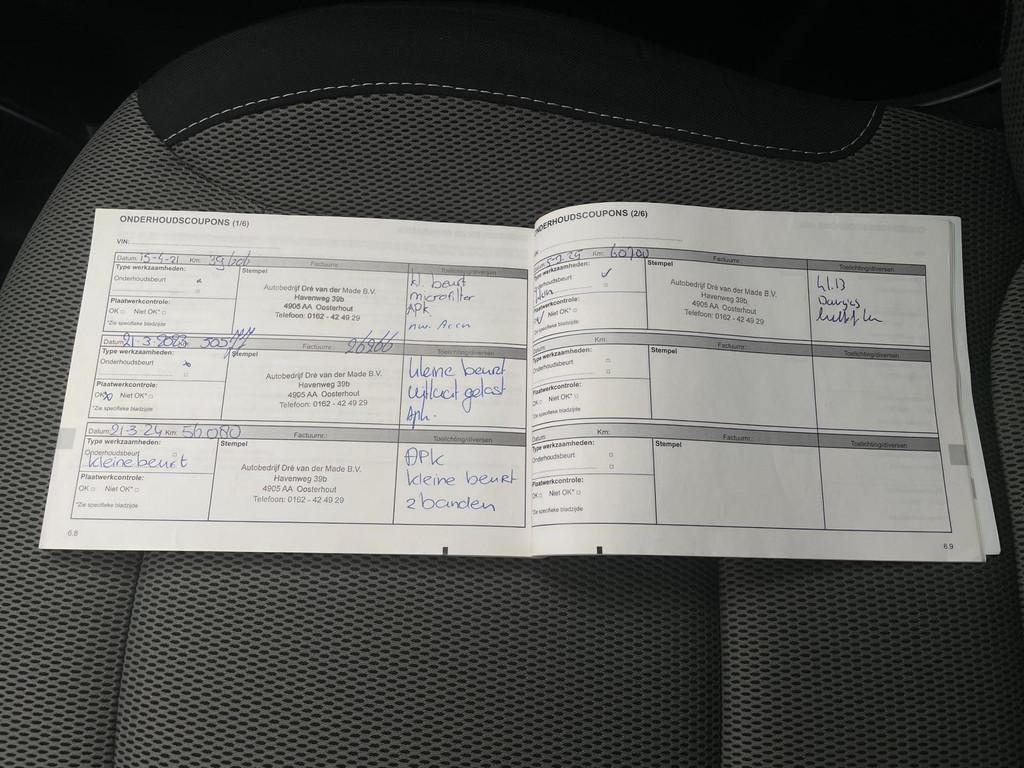 ONDERHOUDSCOUPONS (1/6)
VIN:
Datum: 15-4-21 Km: Factuurnr.:
Type werkzaamheden: Stempel Toelichting/diversen
Onderhoudsbeurt
Plaatwerkcontrole:
OK Niet OK*
*Zie specifieke bladzijde
Autobedrijf Dré van der Made B.V.
Havenweg 39b
4905 AA Oosterhout
Telefoon: 0162 - 42 49 29
kl. beurt
microfilter
APK
nw. Accu
Datum: 21-3- Factuurnr.:
Type werkzaamheden: Stempel Toelichting/diversen
Onderhoudsbeurt
Plaatwerkcontrole:
OK Niet OK*
*Zie specifieke bladzijde
Autobedrijf Dré van der Made B.V.
Havenweg 39b
4905 AA Oosterhout
Telefoon: 0162 - 42 49 29
kleine beurt
uitlaat gelast
Apk.
Datum: 21-3-24 Km: 56080 Factuurnr.:
Type werkzaamheden: Stempel Toelichting/diversen
Onderhoudsbeurt
kleine beurt
Plaatwerkcontrole:
OK Niet OK*
*Zie specifieke bladzijde
Autobedrijf Dré van der Made B.V.
Havenweg 39b
4905 AA Oosterhout
Telefoon: 0162 - 42 49 29
APK
kleine beurt
2 banden
6.8
ONDERHOUDSCOUPONS (2/6)
Datum: Km: 60700 Factuurnr.:
Type werkzaamheden: Stempel Toelichting/diversen
Onderhoudsbeurt
Plaatwerkcontrole:
OK Niet OK*
*Zie specifieke bladzijde
Autobedrijf Dré van der Made B.V.
Havenweg 39b
4905 AA Oosterhout
Telefoon: 0162 - 42 49 29
Datum: Km: Factuurnr.:
Type werkzaamheden: Stempel Toelichting/diversen
Onderhoudsbeurt
Plaatwerkcontrole:
OK Niet OK*
*Zie specifieke bladzijde
Datum: Km: Factuurnr.:
Type werkzaamheden: Stempel Toelichting/diversen
Onderhoudsbeurt
Plaatwerkcontrole:
OK Niet OK*
*Zie specifieke bladzijde
6.9